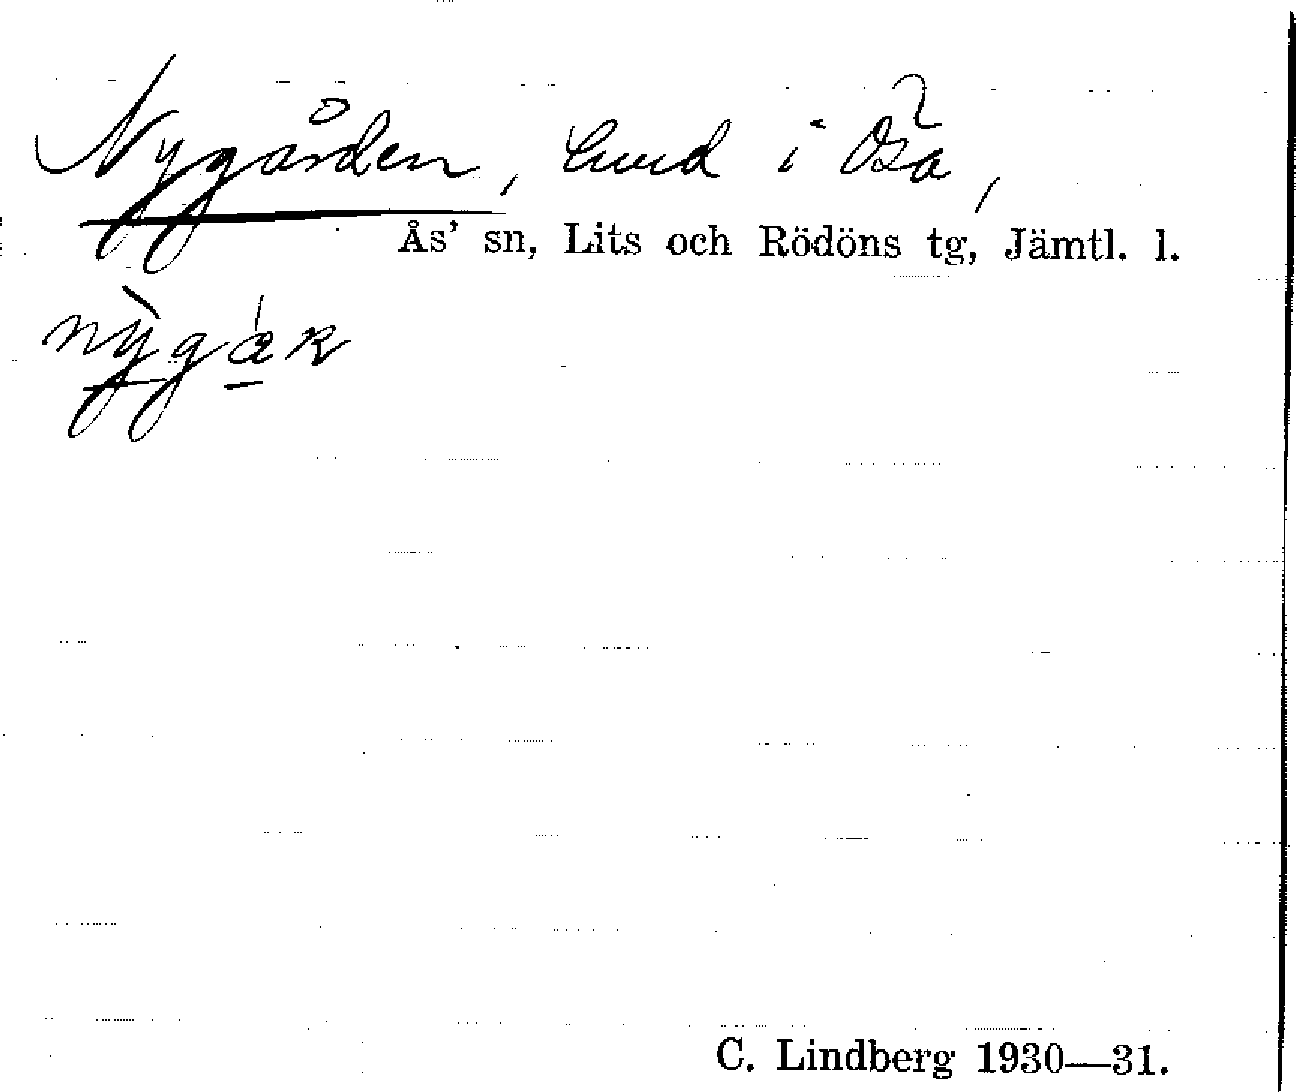 Nygården, hmd i Ösa,
Ås' sn, Lits och Rödöns tg, Jämtl. l.
nỳgár
C. Lindberg 1930—31.